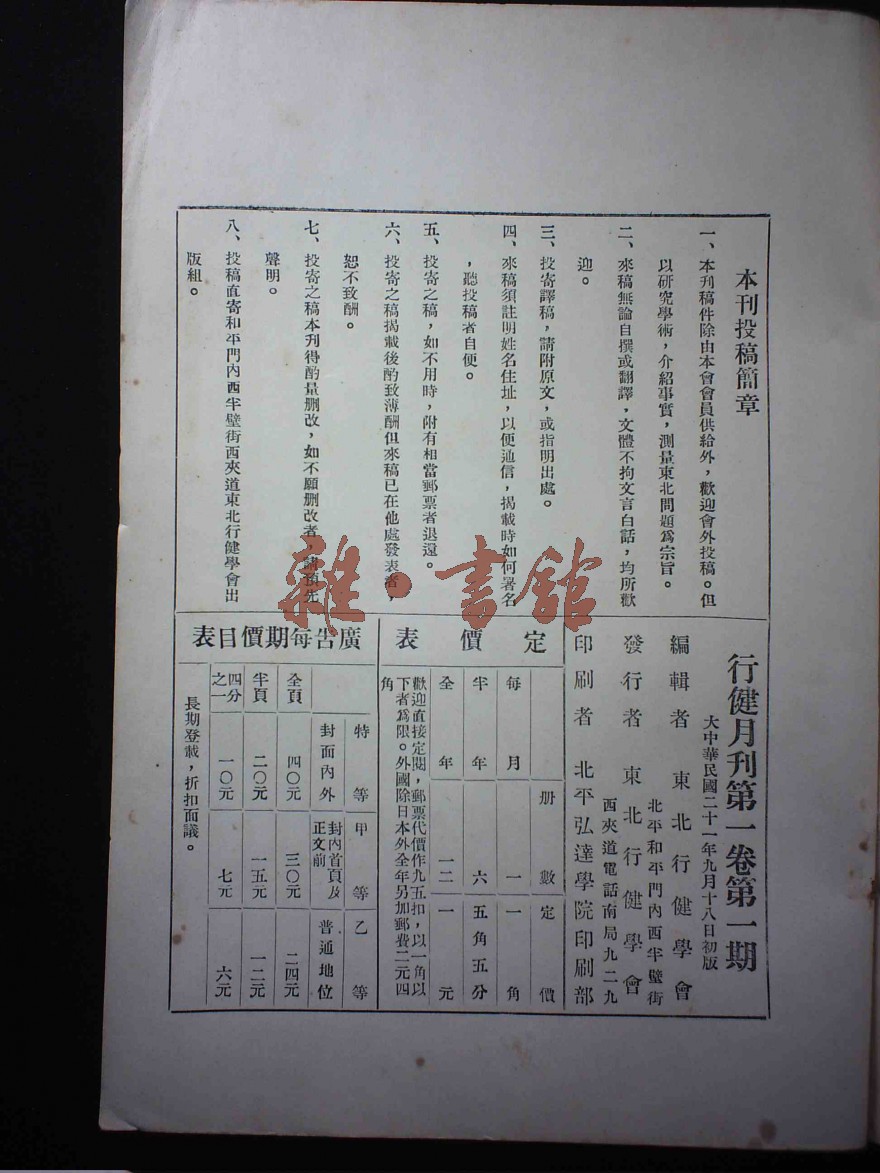 本刊投稿簡章
一、本刊稿件除由本會會員供給外，歡迎會外投稿。但
以研究學術，介紹事實，測量東北問題爲宗旨。
二、來稿無論自撰或翻譯，文體不拘文言白話，均所歡
迎。
三、投寄譯稿，請附原文，或指明出處。
四、來稿須註明姓名住址，以便通信，揭載時如何署名
，聽投稿者自便。
五、投寄之稿，如不用時，附有相當郵票者退還。
六、投寄之稿揭載後酌致薄酬但來稿已在他處發表者，
恕不致酬。
七、投寄之稿本刊得酌量刪改，如不願刪改者，請預先
聲明。
八、投稿直寄和平門內西半壁街西夾道東北行健學會出
版組。
行健月刊第一卷第一期
大中華民國二十一年九月十八日初版
編輯者 東北行健學會
北平和平門內西半壁街
發行者 東北行健學會
西夾道電話南局九二九
印刷者 北平弘達學院印刷部
定價表
册數 定價
每月 一 一角
半年 六 五角五分
全年 一二 一元
歡迎直接定閱，郵票代價作九五扣，以一角以
下者爲限。外國除日本外全年另加郵費二元四
角
廣告每期價目表
特等 甲等 乙等
封面內外 封內首頁及正文前 普通地位
全頁 四〇元 三〇元 二四元
半頁 二〇元 一五元 一二元
四分之一 一〇元 七元 六元
長期登載，折扣面議。
雜·書館